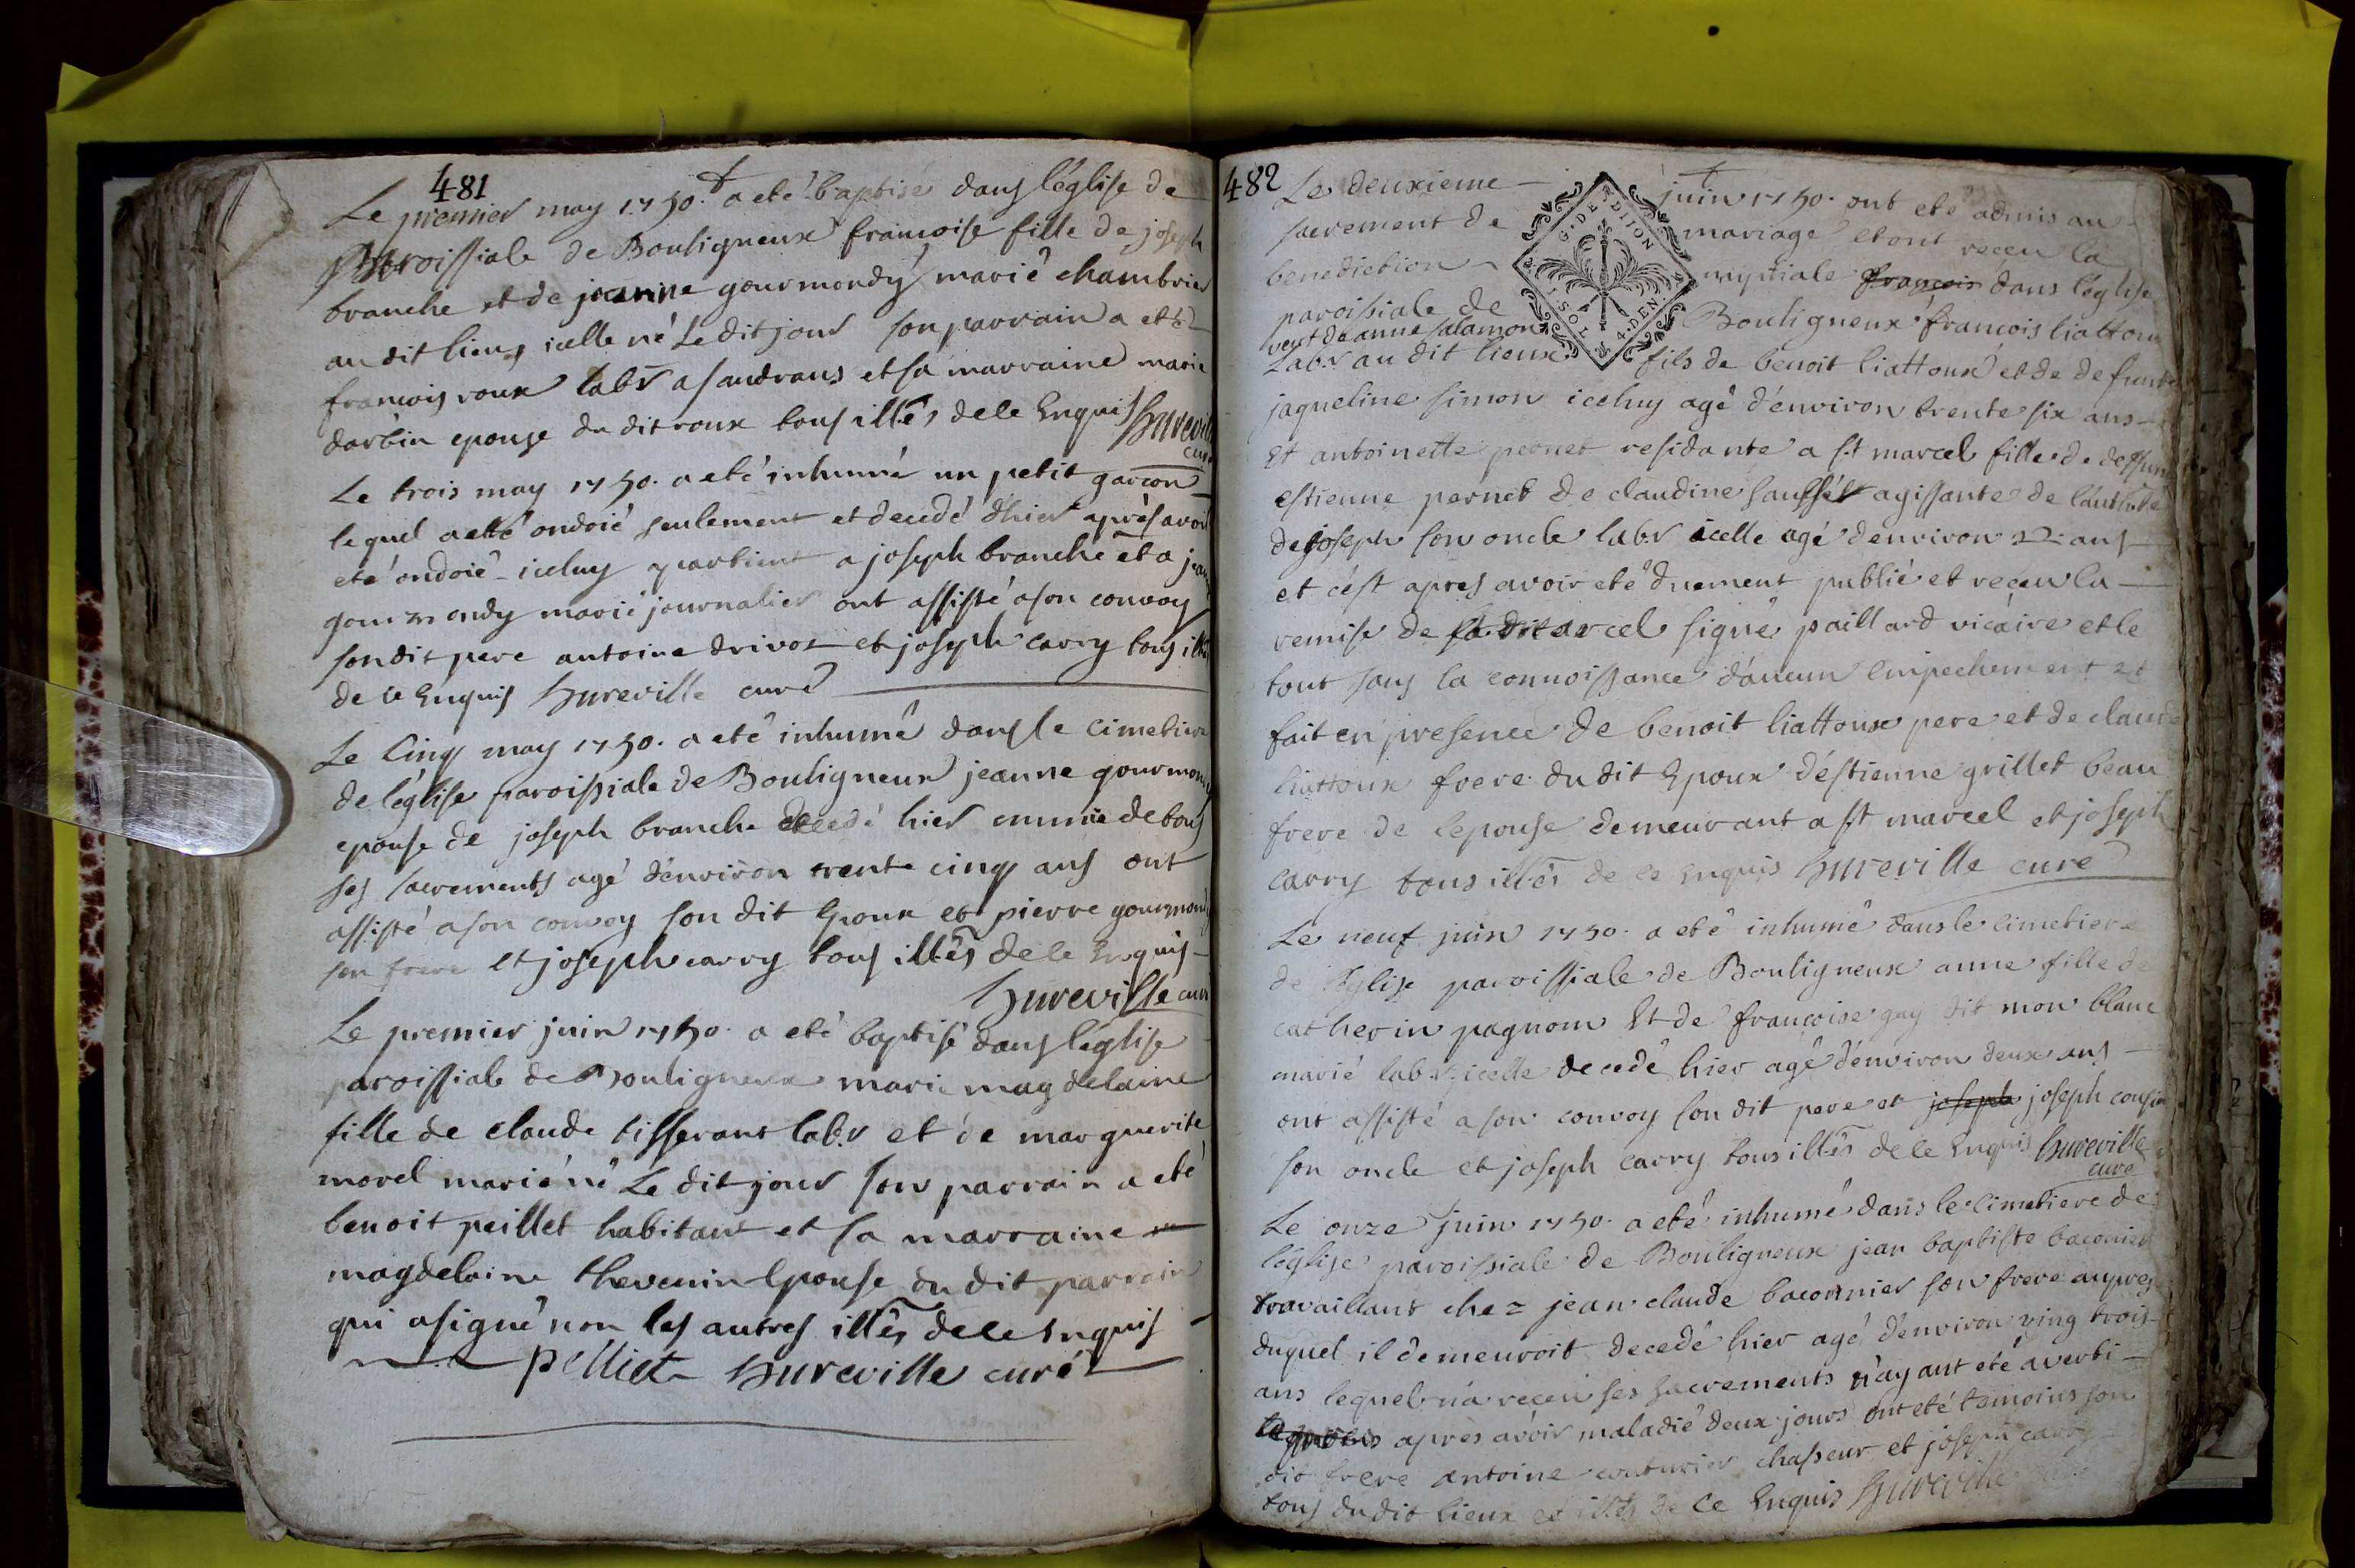 481
Le premier may 1750. a eté baptisé dans l'église de
paroissiale de Bouligneux francoise fille de joseph
branche et de jeanne gourmondy marié chambrier
au dit lieux icelle né Le dit jour son parrain a eté
francois roux labr a sandrans et sa marraine marie
darbin epouse du dit roux tous illés de ce Enquis hureville
curé
Le trois may 1750. a eté inhumé un petit garcon
lequel a eté ondoié seulement et decedé d'hier après avoir
eté ondoié iceluy partient a joseph branche et a jeanne
gourmondy marié journalier ont assisté a son convoy
son dit pere antoine drivoz et joseph carry tous illés
de ce Enquis hureville curé
Le Cinq may 1750. a eté inhumé dans le Cimetiere
de l'église paroissiale de Bouligneux jeanne gourmondy
epouse de joseph branche decedé hier munie de tous
ses sacrements agé d'environ trente cinq ans ont
assisté a son convoy son dit Epoux et pierre gourmondy
son frere et joseph carry tous illés de ce Enquis
hureville curé
Le premier juin 1750. a eté baptisé dans l'église
paroissiale de Bouligneux marie magdelaine
fille de claude tisserant lab.r et de marguerite
morel marié né Le dit jour son parrain a eté
benoit peillet habitant et sa marraine
magdelaine thevenin Epouse du dit parrain
qui a signé non les autres illés de ce Enquis
pelliet hureville curé
482
Le deuxieme juin 1750. ont eté admis au
sacrement de mariage et ont receu la
benediction nuptiale francois dans l'église
paroissiale de Bouligneux francois liattoux
veuf de anne salamon
Lab.r au dit lieux fils de benoit liattoux et de defunte
jaqueline simon iceluy agé d'environ trente six ans
Et antoinette pernet residante a st marcel fille de deffunt
estienne pernet de claudine agissante de l'authorité
de joseph son oncle lab.r icelle agé d'environ 22 ans
et c'est apres avoir eté duement publié et receu la
remise de marcel signé paillard vicaire et le
tout sans la connoissance d'aucun Empechement et
fait en presence de benoit liattoux pere et de claude
liattoux frere du dit Epoux d'estienne grillet beau
frere de l'epouse demeurant a st marcel et joseph
carry tous illés de ce Enquis hureville curé
Le neuf juin 1750. a eté inhumé dans le cimetiere
de l'Eglise paroissiale de Bouligneux anne fille de
catherin pagnom Et de francoise guy dit mon blanc
marié lab.r icelle decedé hier agé d'environ deux ans
ont assisté a son convoy son dit pere et joseph joseph cousin
son oncle et joseph carry tous illés de ce Enquis hureville
curé
Le onze juin 1750. a eté inhumé dans le cimetiere de
l'église paroissiale de Bouligneux jean baptiste baconier
travaillant chez jean claude baconnier son frere aupres
duquel il demeuroit decedé hier agé d'environ ving trois
ans lequel n'a receu ses sacrements n'ayant eté averti
après avoir maladié deux jours ont eté temoins son
dit frere antoine couturier chasseur et joseph carry
tous du dit lieux et illés de ce Enquis hureville
G. DE DIJON
1 SOL 4. DEN.